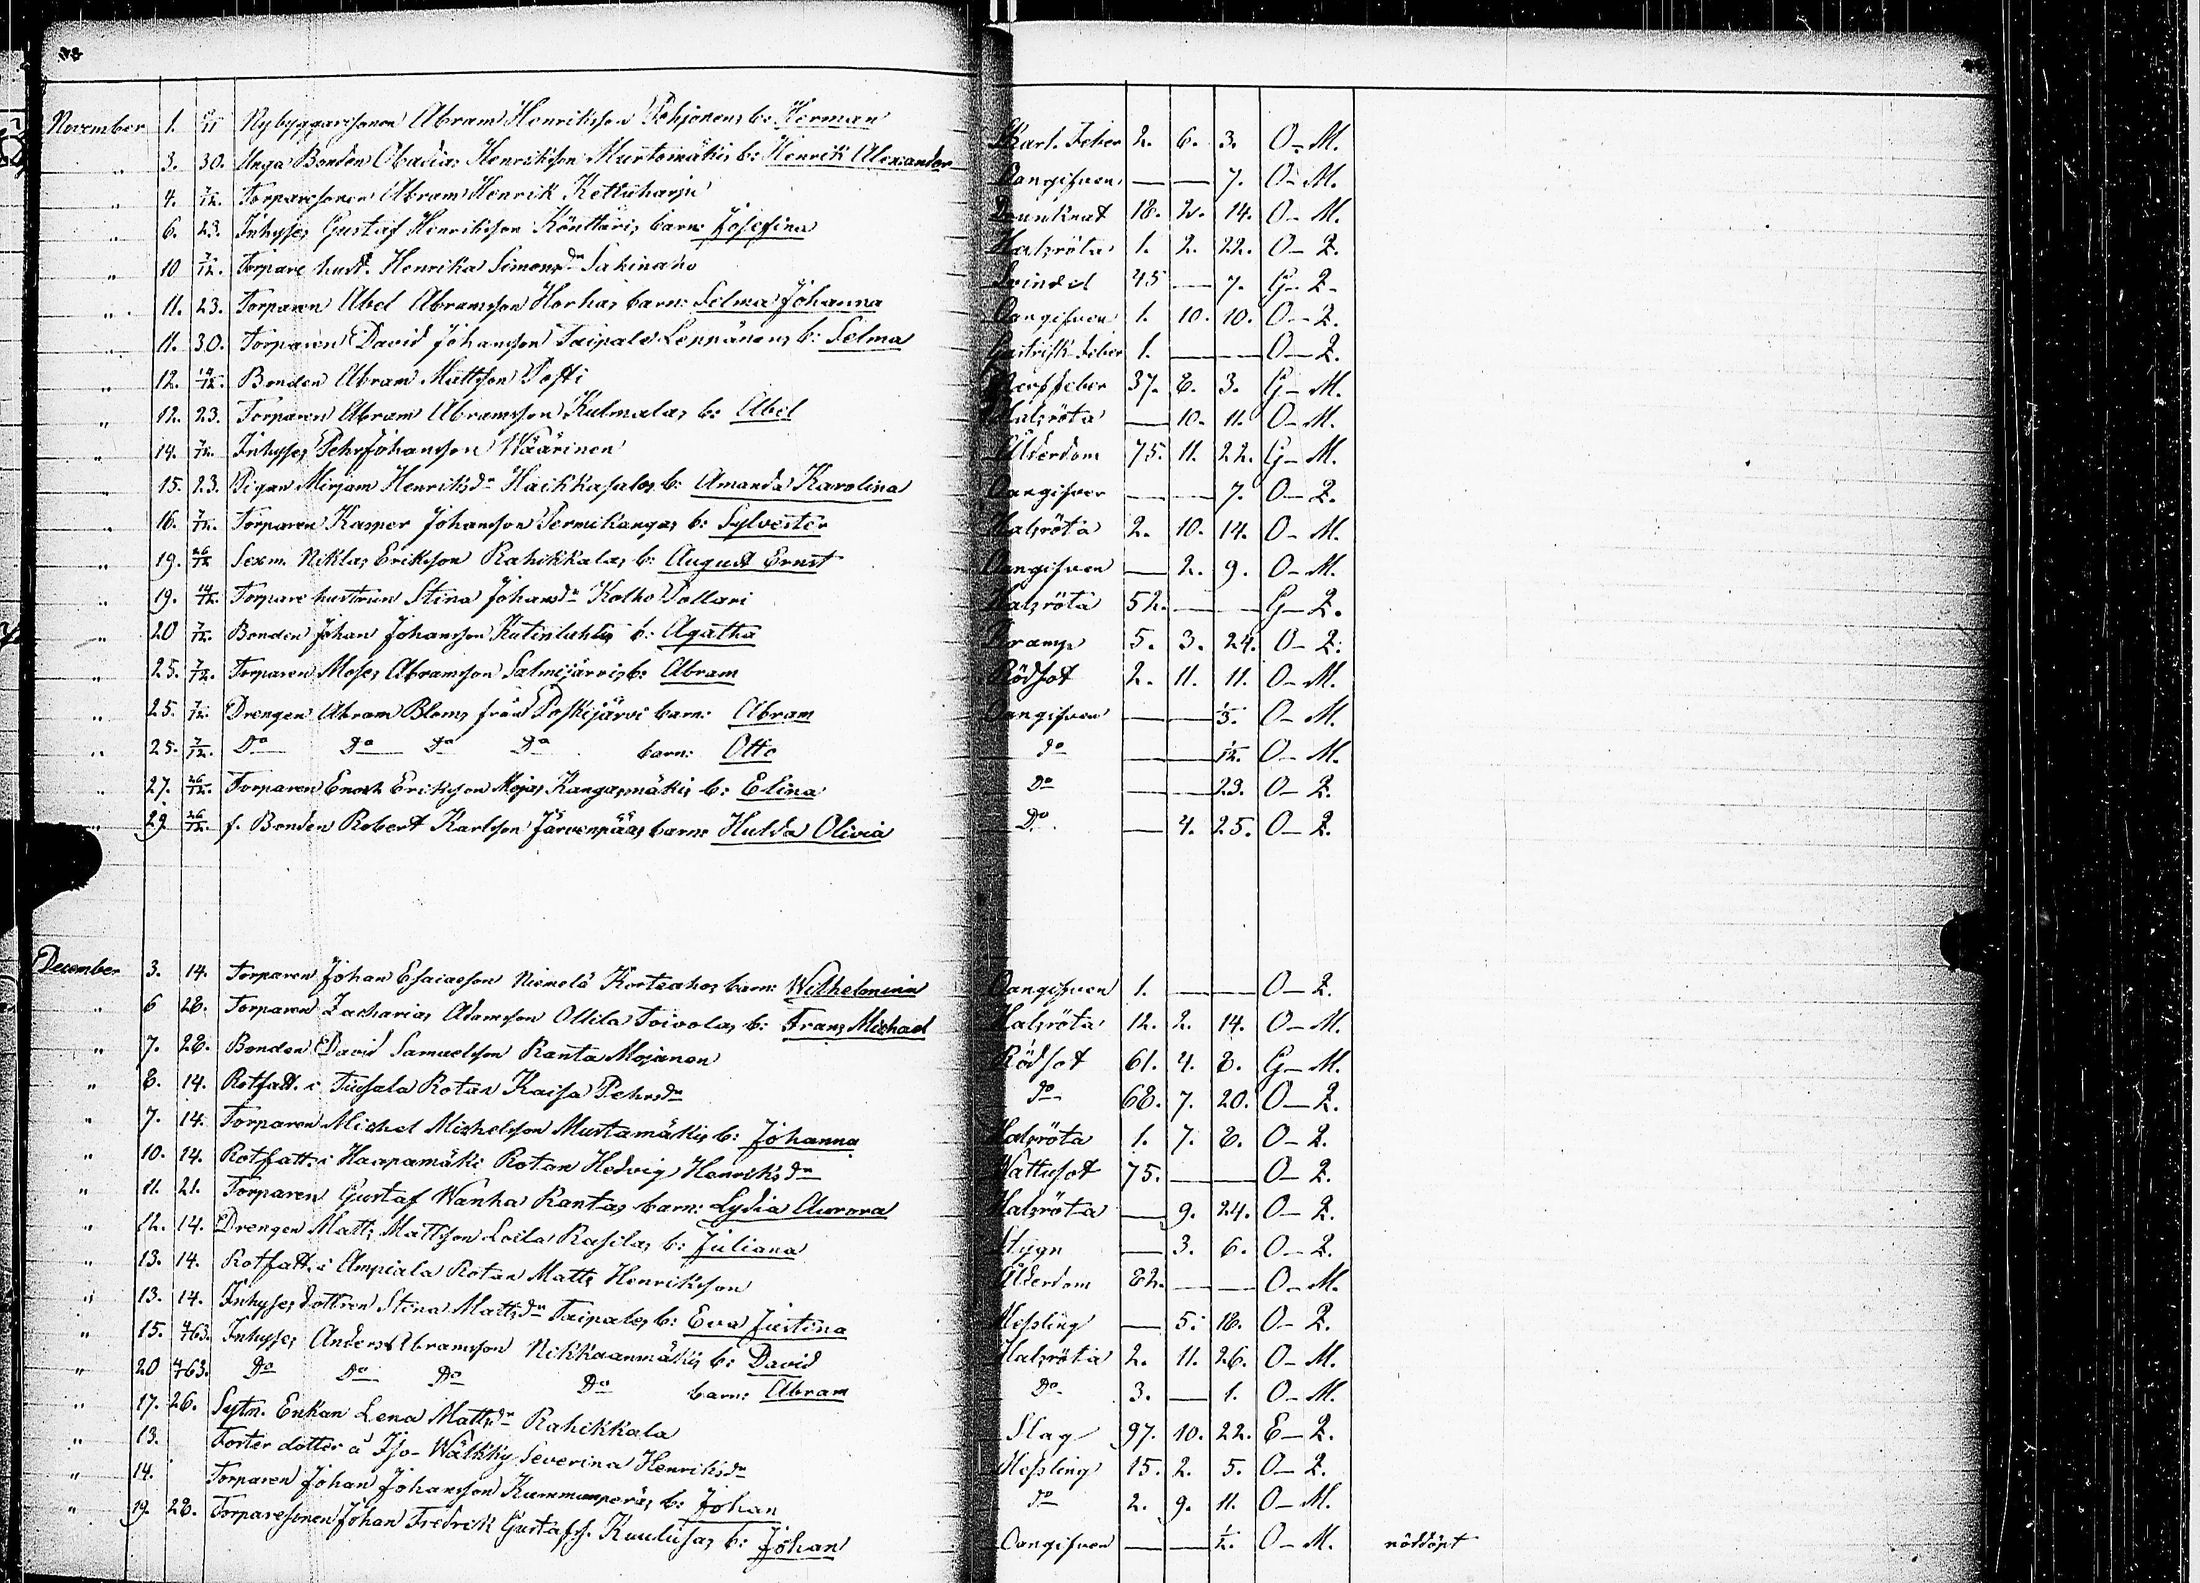 November 1. 9/11 Nybyggaresonen Abram Henriksson Pohjonens b: Herman Skarl. Feber 2. 6. 3. O-M.
" 3. 30. Unga Bonden Obadias Henriksson Murtomäkis b: Henrik Alexander Oangifven — — 7. O-M.
" 4. 7/12. Torparesonen Abram Henrik Kettuharju Drunknat 18. 2. 14. O-M.
" 6. 23. Inhyses Gustaf Henriksson Könttäris barn: Josefina Halsröta 1. 2. 22. O-2.
" 10 7/12. Torpare hust. Henrika Simonsdr Sakinaho Svindel 45 — 7. G-2.
" 11. 23. Torparen Abel Abramsson Horhas barn: Selma Johanna Oangifven 1. 10. 10. O-2.
" 11. 30. Torparen David Johansson Taipale Leppänens b: Selma Gastrisk feber 1. — — O-2.
" 12. 14/12. Bonden Abram Mattsson Posti Nerffeber 37. 8. 3. G-M.
" 12. 23. Torparen Abram Abramsson Kulmalas b: Abel Halsröta — 10. 11. O-M.
" 14. 7/12. Inhyses Pehr Johansson Wäärinen Ålderdom 75. 11. 22. G-M.
" 15. 23. Pigan Mirjam Henriksdr Haikkasalos b: Amanda Karolina Oangifven — — 7. O-2.
" 16. 7/12. Torparen Kasper Johansson Permikangas b: Sylvester Halsröta 2. 10. 14. O-M.
" 19. 26/12 Sexm. Niklas Eriksson Rahikkalas b: August Ernst Oangifven — 2. 9. O-M.
" 19. 14/12. Torpare hustrun Stina Johansdr Kolho Pollari Halsröta 52. — — G-2.
" 20 7/12. Bonden Johan Johansson Kutinlahtis b: Agatha Kramp 5. 3. 24. O-2.
" 25. 7/12. Torparen Moses Abramsson Salmijärvis b: Abram Rödsot 2. 11. 11. O-M.
" 25. 7/12. Drengen Abram Bloms från Poskijärvi barn: Abram Oangifven — — 1/3. O-M.
" 25. 7/12. Do Do Do Do barn: Otto do — — 1/12. O-M.
" 27. 26/12. Torparen Enok Eriksson Mojas Kangasmäkis b: Elina Do — — 23. O-2.
" 29 26/12. f. Bonden Robert Karlsson Järvenpääs barn: Hulda Olivia Do — 4. 25. O-2.
December 3. 14. Torparen Johan Esaiasson Niemelä Korteahos barn: Wilhelmina Oangifven 1. — — O-2.
" 6 28. Torparen Zacharias Adamsson Ollila Toivolas b: Frans Michael Halsröta 12. 2. 14. O-M.
" 7. 28. Bonden David Samuelsson Ranta Mojanen Rödsot 61. 4. 8. G-M.
" 8. 14. Rotfatt. i Tuisala Rotan Kaisa Pehrsdr do 68. 7. 20. O-2.
" 7. 14. Torparen Michel Michelsson Mustamäkis b: Johanna Halsröta 1. 7. 8. O-2.
" 10. 14. Rotfatt. i Haapamäki Rotan Hedvig Henriksdr Wattusot 75. — — O-2.
" 11. 21. Torparen Gustaf Wanha Rantas barn: Lydia Aurora Halsröta — 9. 24. O-2.
" 12. 14. Drengen Matts Mattsson Loila Rasilas b: Juliana Stygn — 3. 6. O-2.
" 13. 14. Rotfatt. i Ampiala Rotan Matts Henriksson Ålderdom 82. — — O-M.
" 13. 14. Inhyses dottren Stina Mattsdr Taipales b: Eva Justina Messling — 5. 18. O-2.
" 15. 4/1 63. Inhyses Anders Abramsson Nikkaanmäkis b: David Halsröta 2. 11. 26. O-M.
" 20 4/1 63. Do Do Do Do barn: Abram Do 3. — 1. O-M.
" 17. 26. Sytn. Enkan Lena Mattsdr Rahikkala Slag 97. 10. 22. E-2.
" 13. Foster dotter å Iso-Wälkky Severina Henriksdr Messling 15. 2. 5. O-2.
" 14. Torparen Johan Johansson Kummunperäs b: Johan do 2. 9. 11. O-M.
" 19. 28. Torparesonen Johan Fredrik Gustafss. Kuulusas b: Johan Oangifven — — 1/2. O-M. nöddöpt